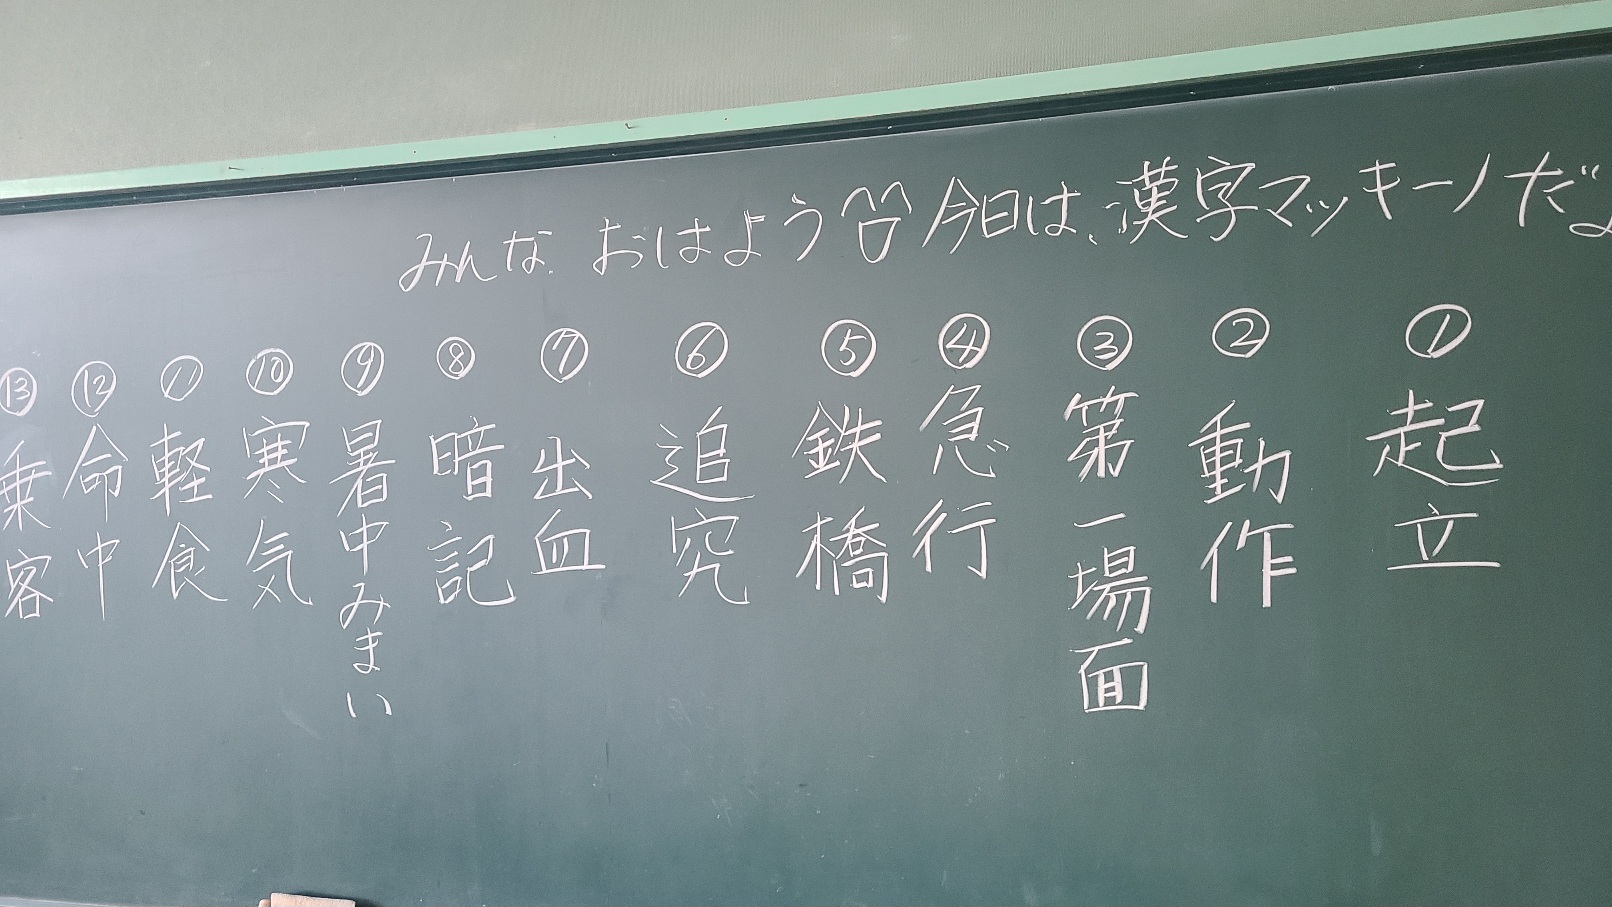 みんな、おはよう 今日は、漢字マッキーノだよ
① 起立
② 動作
③ 第一場面
④ 急行
⑤ 鉄橋
⑥ 追究
⑦ 出血
⑧ 暗記
⑨ 暑中みまい
⑩ 寒気
⑪ 軽食
⑫ 命中
⑬ 乗客